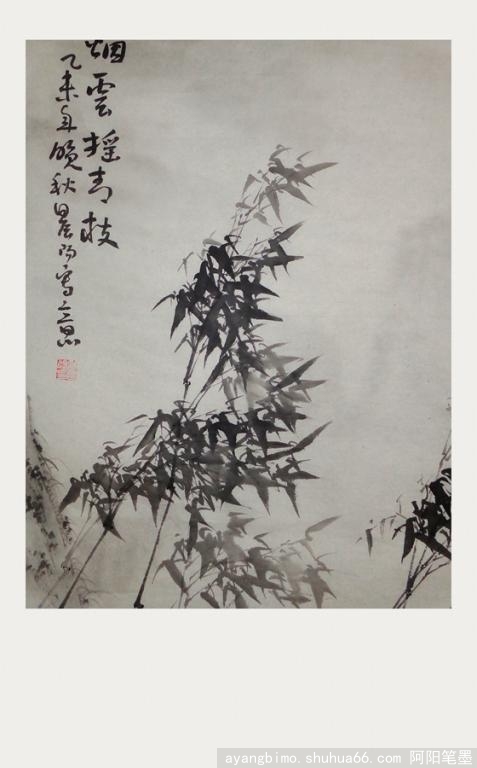 烟雲摇青枝
乙未年晚秋晨阳写意
ayangbimo.shuhua66.com 阿阳笔墨